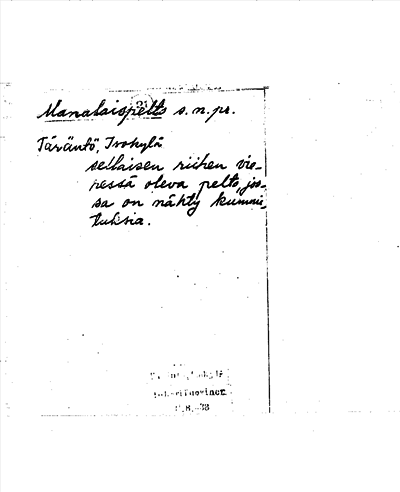 Manalaispelto s.n.pr.
Täräntö, Isokylä
sellaisen riihen vie-
ressä oleva pelto, jos-
sa on nähty kummi-
tuksia.